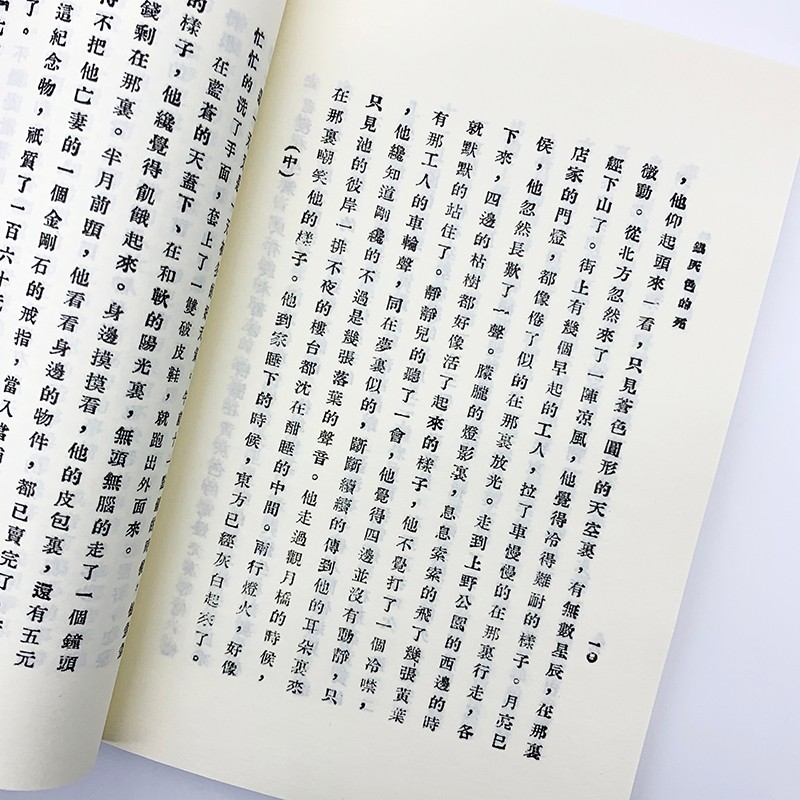 銀灰色的死
一〇
，他仰起頭來一看，只見蒼色圓形的天空裏，有無數星辰，在那裏
微動。從北方忽然來了一陣凉風，他覺得冷得難耐的樣子。月亮已
經下山了。街上有幾個早起的工人，拉了車慢慢的在那裏行走，各
店家的門燈，都像倦了似的在那裏放光。走到上野公園的西邊的時
候，他忽然長歎了一聲。朦朧的燈影裏，息息索索的飛了幾張黃葉
下來，四邊的枯樹都好像活了起來的樣子，他不覺打了一個冷噤，
就默默的站住了。靜靜兒的聽了一會，他覺得四邊並沒有動靜，只
有那工人的車輪聲，同在夢裏似的，斷斷續續的傳到他的耳朵裏來
，他纔知道剛纔的不過是幾張落葉的聲音。他走過觀月橋的時候，
只見池的彼岸一排不夜的樓台都沈在酣睡的中間。兩行燈火，好像
在那裏嘲笑他的樣子。他到家睡下的時候，東方已經灰白起來了。
（中）
忙忙的洗了手面，套上了一雙破皮鞋，就跑出外面來。
在藍蒼的天蓋下、在和軟的陽光裏，無頭無腦的走了一個鐘頭
的樣子，他纔覺得飢餓起來。身邊摸摸看，他的皮包裏，還有五元
錢剩在那裏。半月前頭，他看看身邊的物件，都已賣完了，
得不把他亡妻的一個金剛石的戒指，當入當
這紀念物，祇質了一百六十元
了。